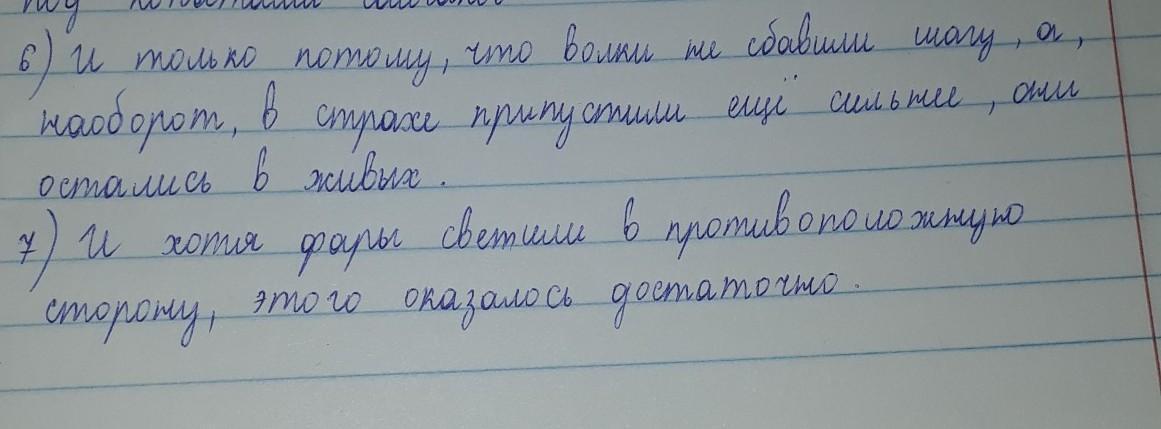 под
6) И только потому, что волки не сбавили шагу, а,
наоборот, в страхе припустили ещё сильнее, они
остались в живых.
7) И хотя фары светили в противоположную
сторону, этого оказалось достаточно.